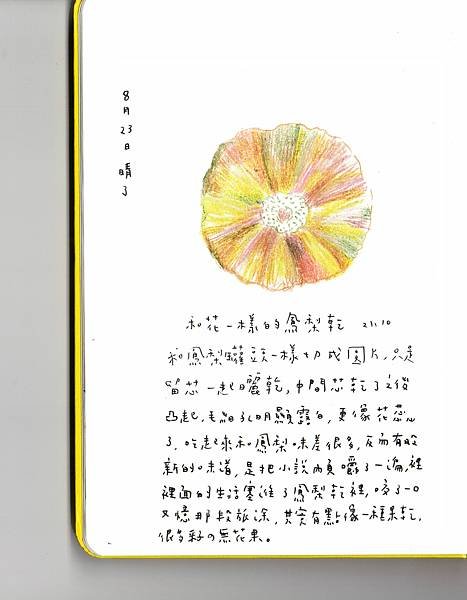 8月23日晴了
和花一樣的鳳梨乾 21:10
和鳳梨罐頭一樣切成圓片,只是
留芯一起日曬乾,中間芯乾了之後
凸起,毛細孔明顯露白,更像花蕊
了,吃起來和鳳梨味差很多,反而有股
新的味道,是把小說內頁嚼了一遍,裡
裡面的生活塞進了鳳梨乾裡,咬了一口
又憶那段旅途,其實有點像一種果乾,
很多籽的無花果。